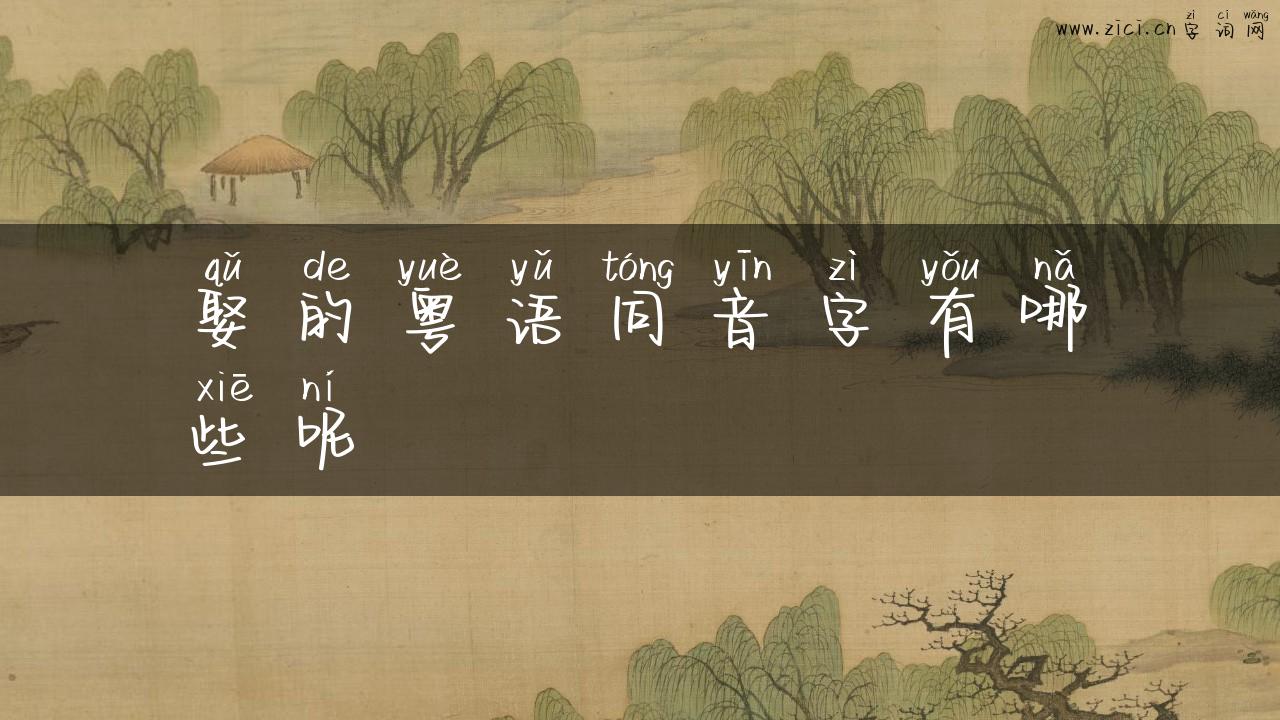 zì cí wǎng
www.zici.cn 字词网
qǔ de yuè yǔ tóng yīn zì yǒu nǎ
娶的粤语同音字有哪
xiē ní
些呢